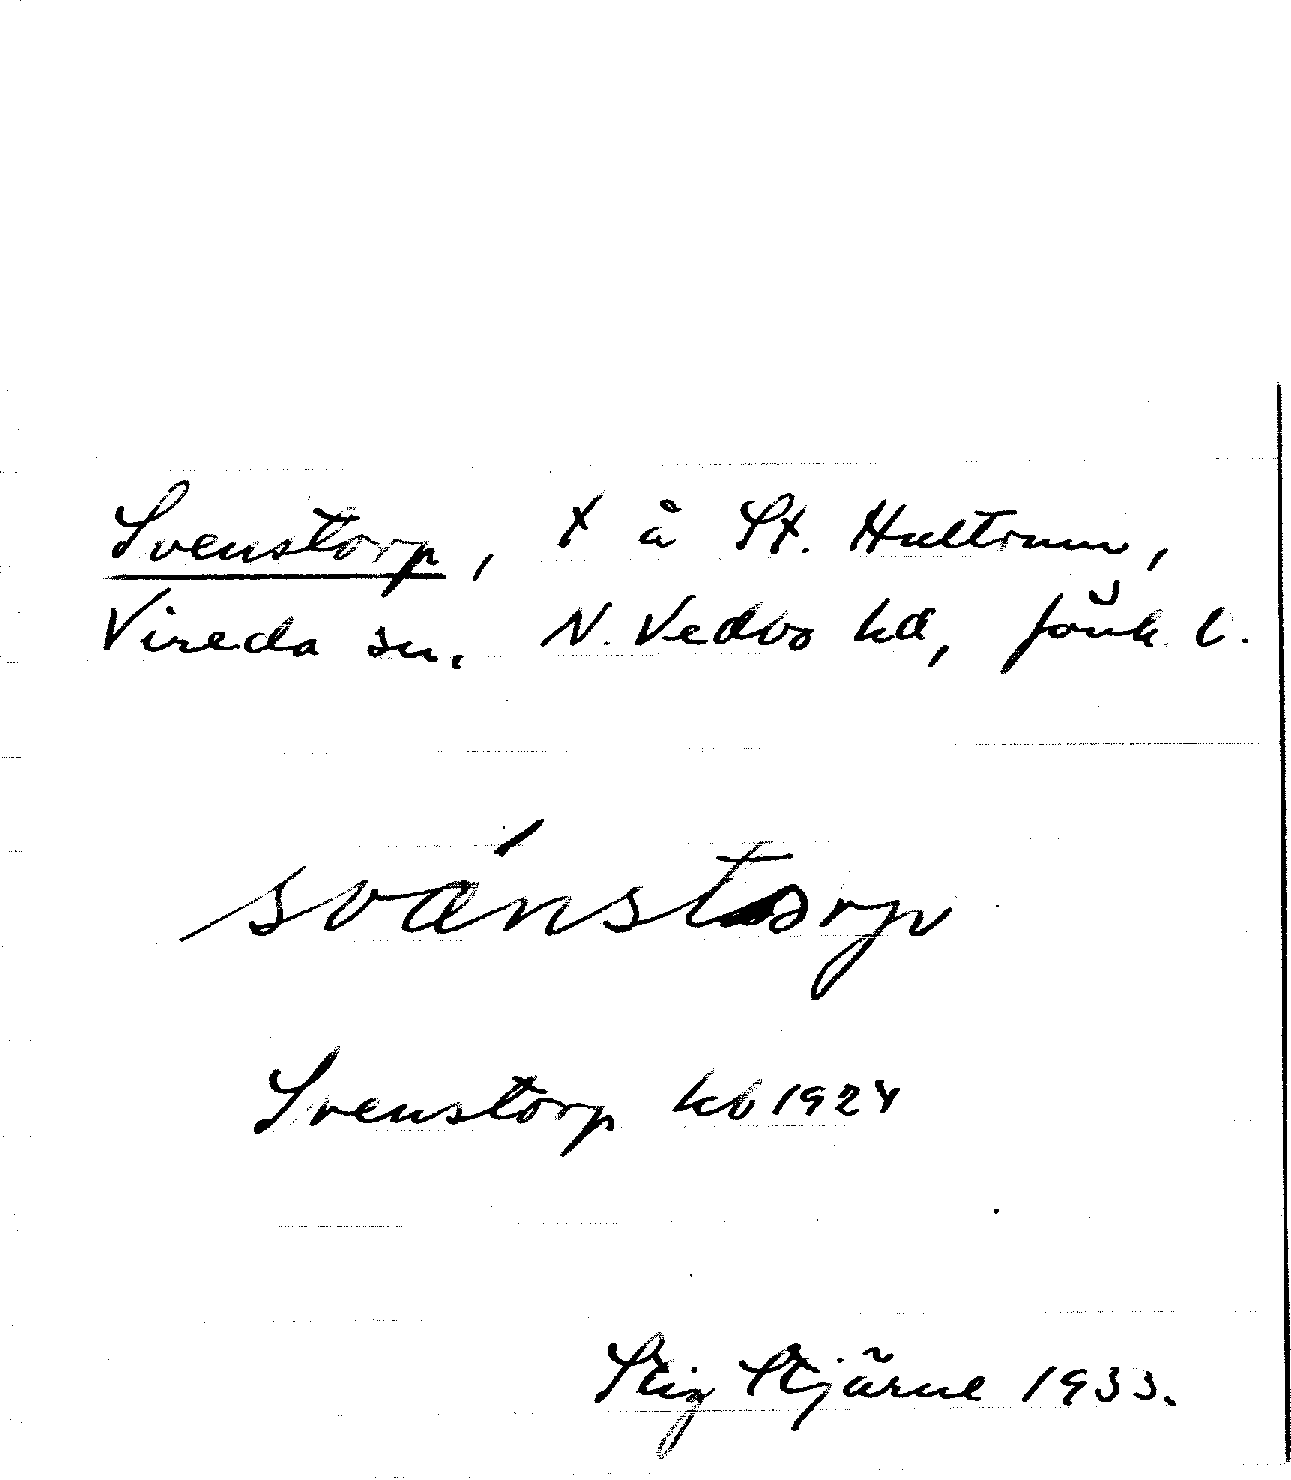 Svenstorp, t å St. Hultrum,
Vireda sn. N. Vedbo hd, Jönk. l.
svänstorp
Svenstorp kb 1924
Stig Stjärne 1933.